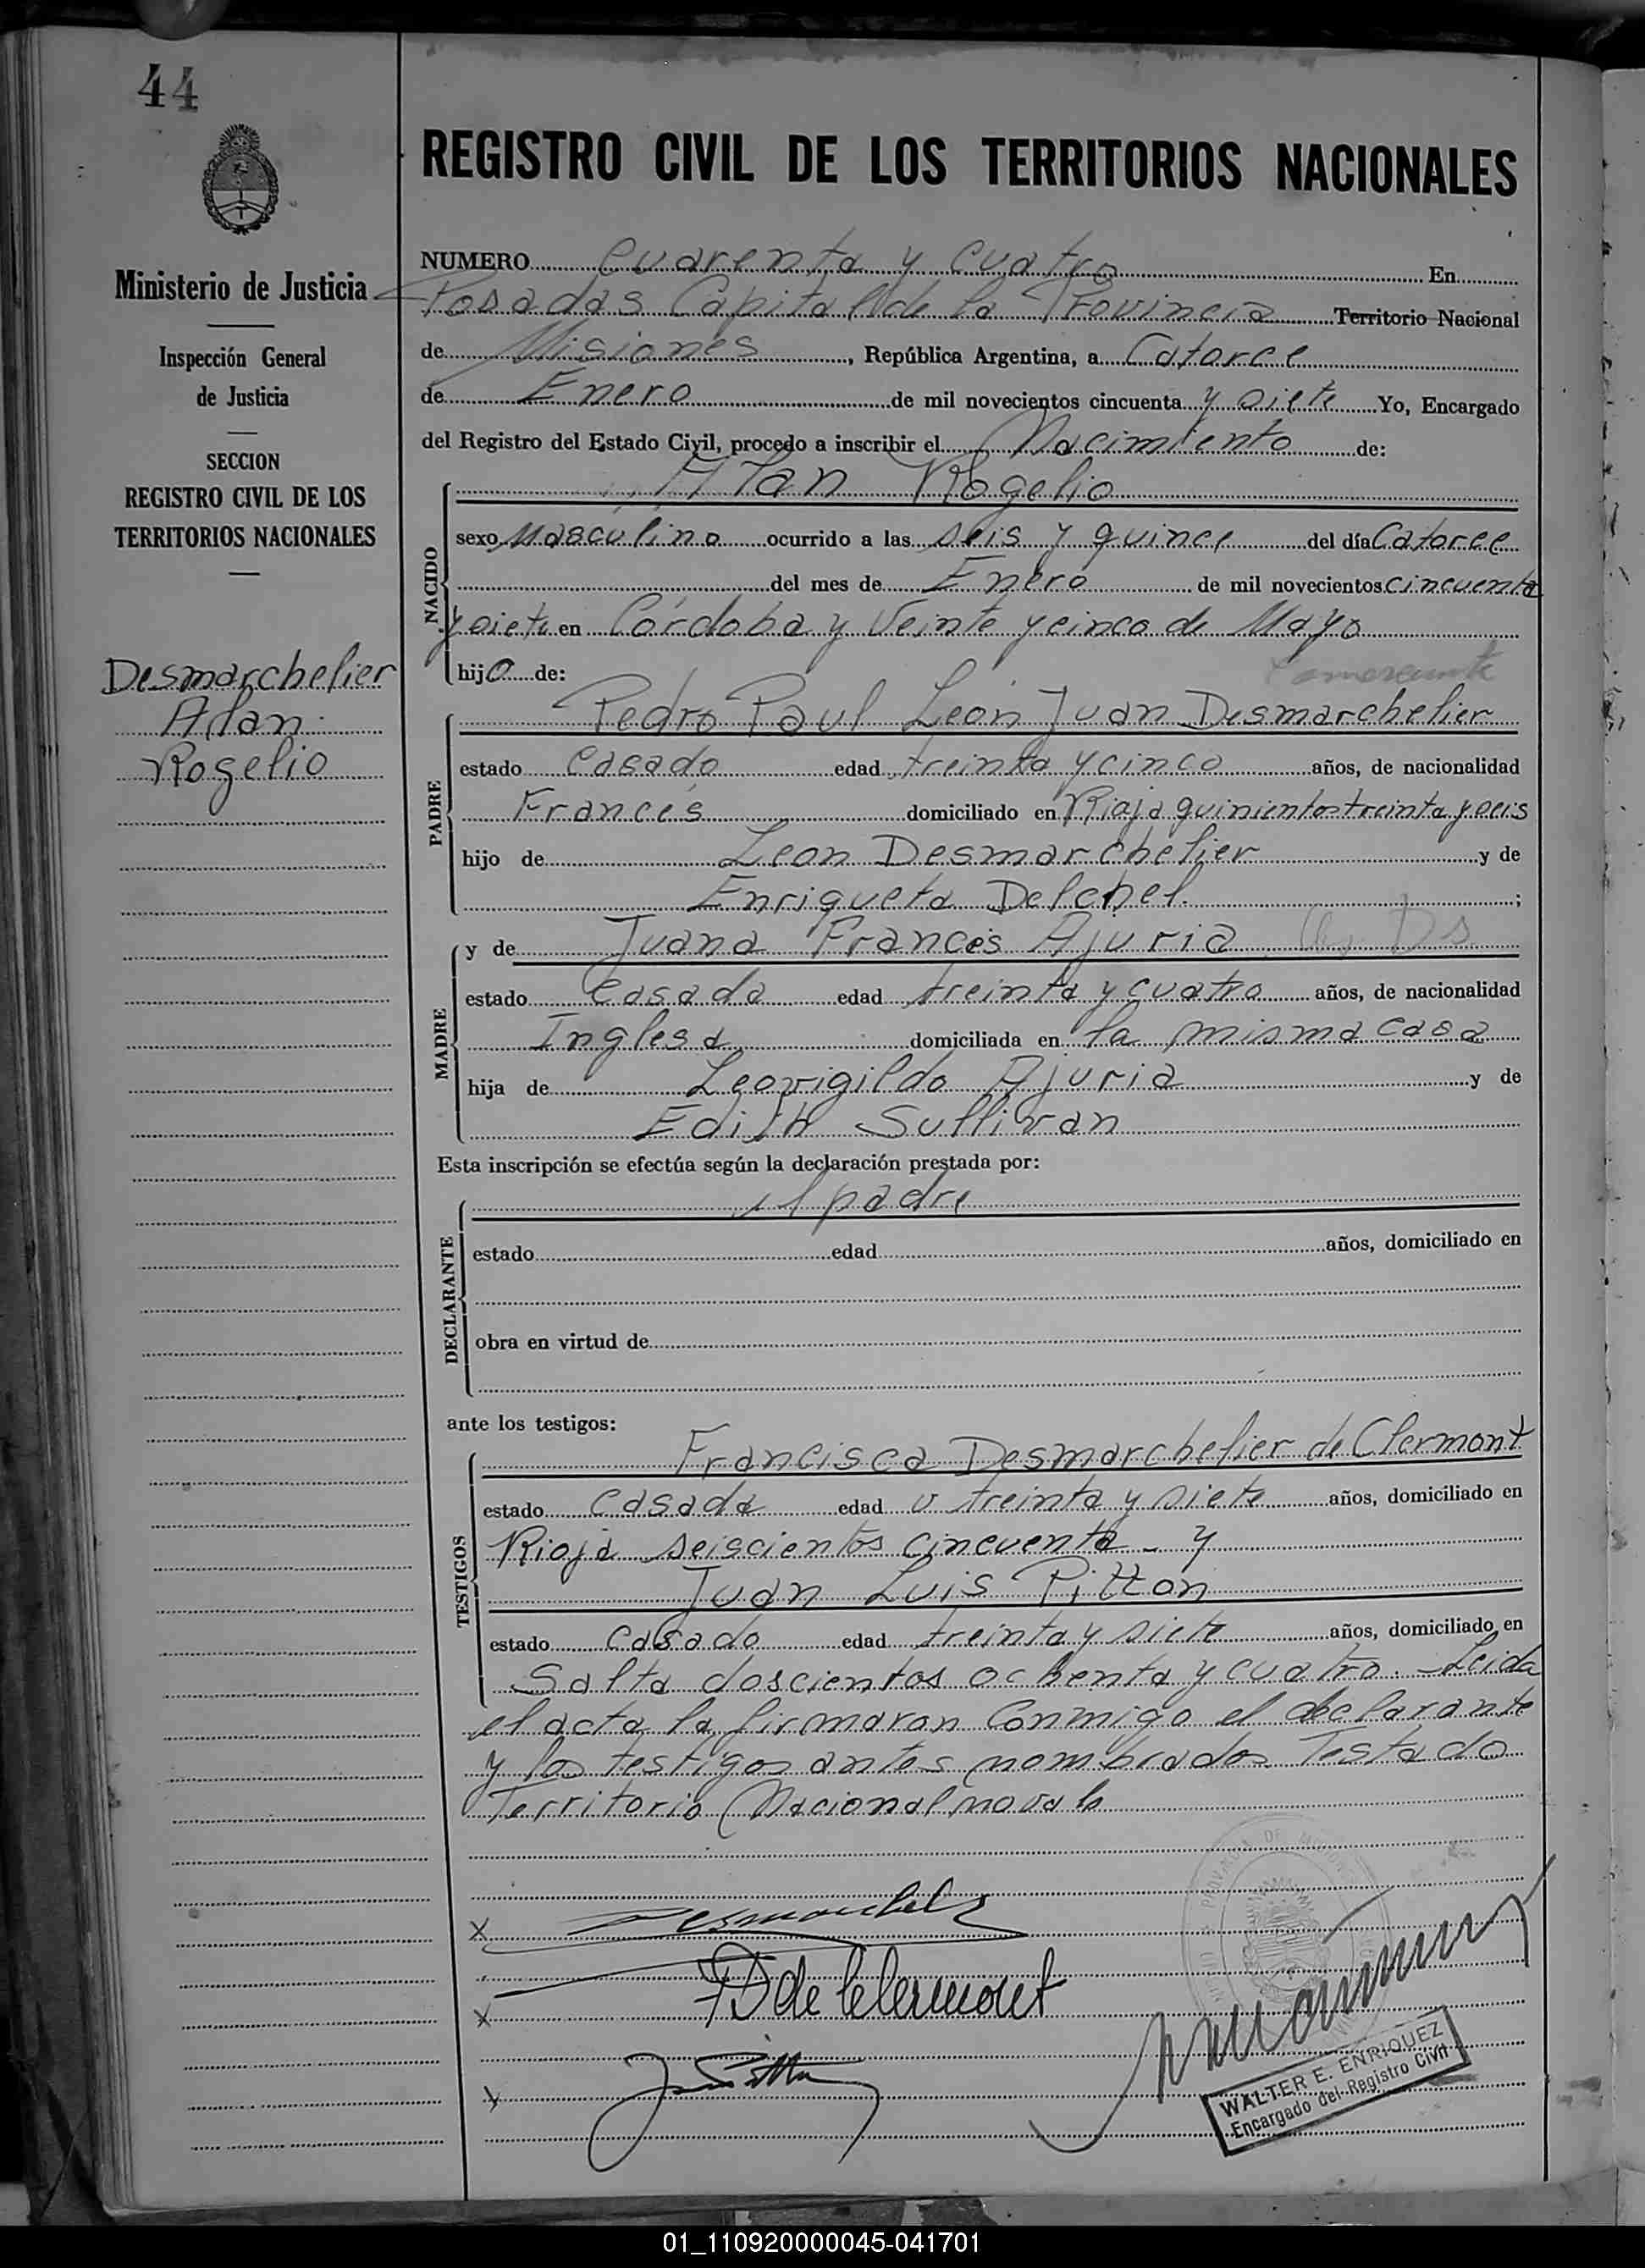 44
Ministerio de Justicia
Inspección General
de Justicia
SECCION
REGISTRO CIVIL DE LOS
TERRITORIOS NACIONALES
Desmarchelier
Alan
Rogelio
REGISTRO CIVIL DE LOS TERRITORIOS NACIONALES
NUMERO Cuarenta y cuatro En
Posadas Capital de la Provincia Territorio Nacional
de Misiones, República Argentina, a Catorce
de Enero de mil novecientos cincuenta y siete Yo, Encargado
del Registro del Estado Civil, procedo a inscribir el Nacimiento de:
NACIDO
Alan Rogelio
sexo Masculino ocurrido a las seis y quince del día Catorce
del mes de Enero de mil novecientos cincuenta
y siete en Córdoba y Veinte y cinco de Mayo
hijo de:
Comerciante
PADRE
Pedro Paul León Juan Desmarchelier
estado Casado edad treinta y cinco años, de nacionalidad
Francés domiciliado en Rioja quinientos treinta y seis
hijo de Leon Desmarchelier y de
Enriqueta Delchel. ;
MADRE
y de Juana Francés Ajuria
estado Casada edad treinta y cuatro años, de nacionalidad
Inglesa domiciliada en la misma casa
hija de Leovigildo Ajuria y de
Edith Sullivan
Esta inscripción se efectúa según la declaración prestada por:
DECLARANTE
el padre
estado edad años, domiciliado en
obra en virtud de
ante los testigos:
TESTIGOS
Francisca Desmarchelier de Clermont
estado Casada edad treinta y siete años, domiciliado en
Rioja seiscientos cincuenta - y
Juan Luis Pitton
estado Casado edad treinta y siete años, domiciliado en
Salta doscientos ochenta y cuatro. Leida
el acta la firmaron conmigo el declarante
y los testigos antes nombrados Testado
Territorio Nacional no vale
X Desmarchelier
X FD de Clermont
X J Pitton
WALTER E. ENRIQUEZ
Encargado del Registro Civil
01_110920000045-041701